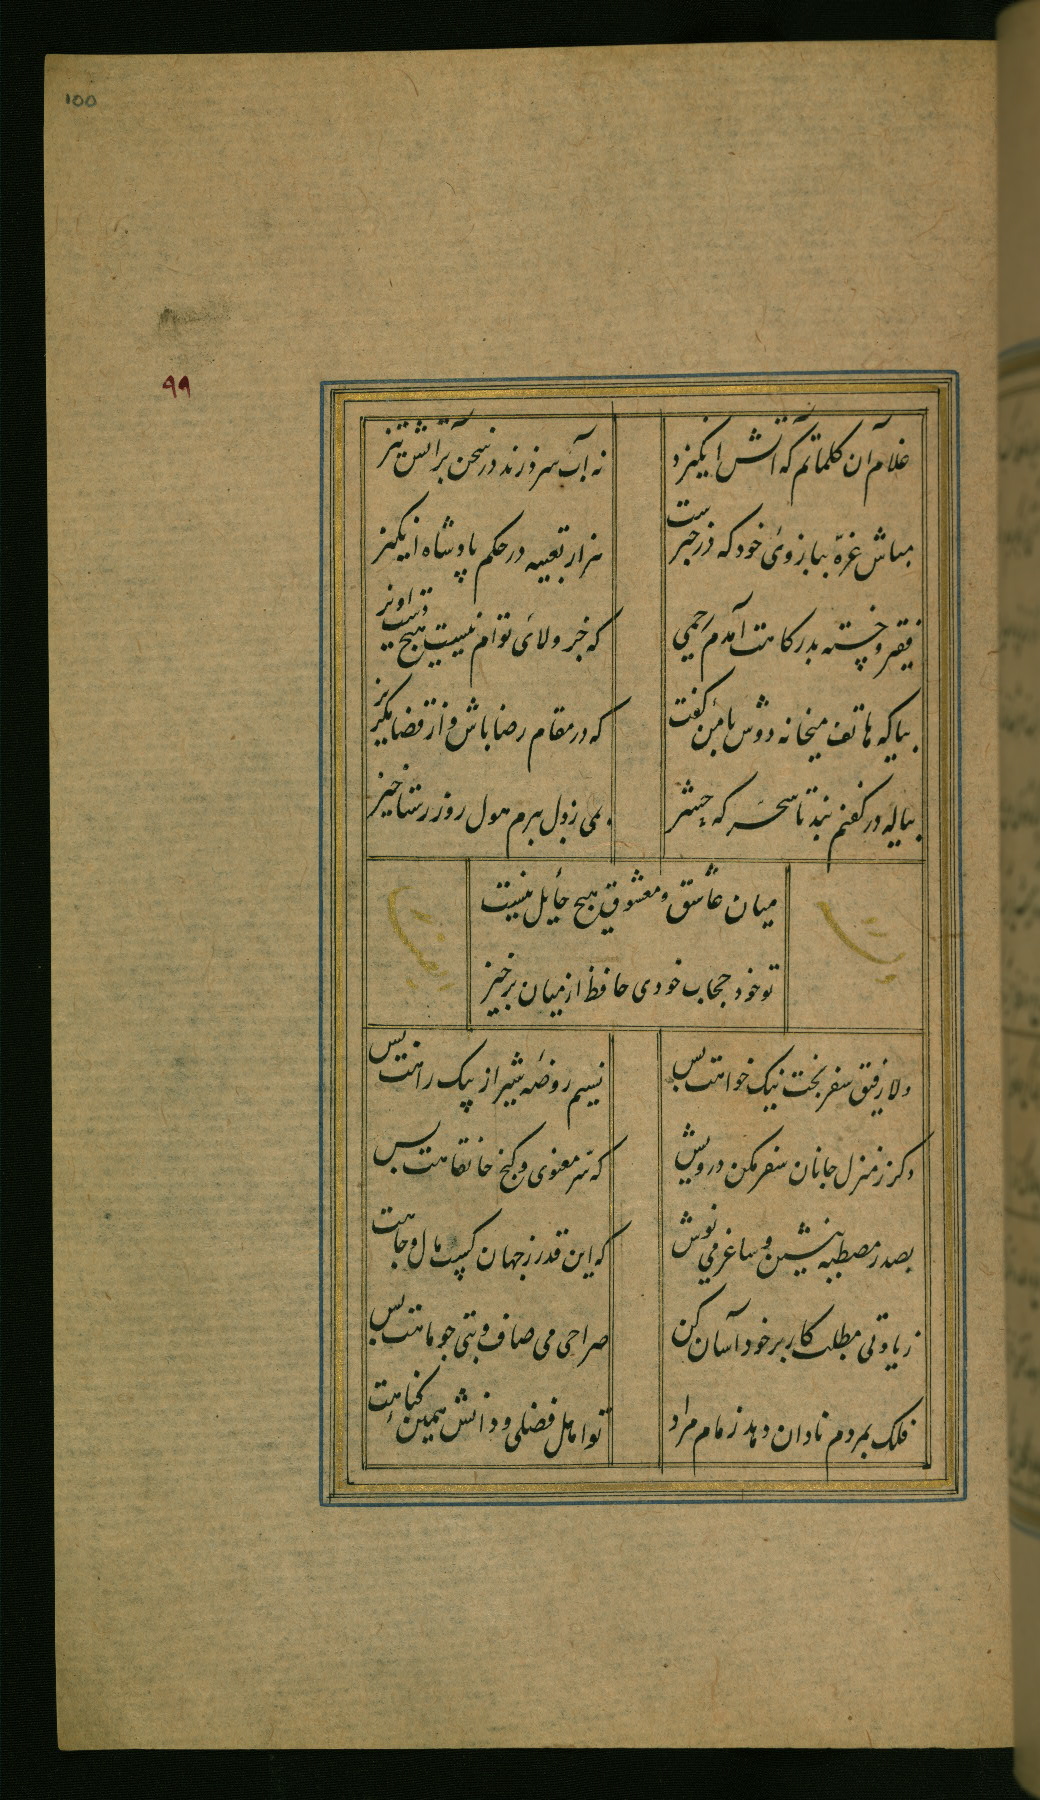 100
۹۹
غلام آن کلماتم که آتش انگیزد
نه آب سرد زند در سخن بر آتش تیز
مباش غره ببازوی خود که در خبرست
هزار تعبیه در حکم پادشاه انگیز
فقیر و خسته بدرگاهت آمدم رحمی
که جز ولای توام نیست هیچ دست اویز
بیا که هاتف میخانه دوش با من گفت
که در مقام رضا باش و از قضا مگریز
پیاله در کفنم بند تا سحرگه حشر
بمی ز دل ببرم هول روز رستاخیز
میان عاشق و معشوق هیچ حایل نیست
تو خود حجاب خودی حافظ از میان برخیز
دلا رفیق سفر بخت نیک خواهت بس
نسیم روضه شیراز پیک راهت بس
دگر ز منزل جانان سفر مکن درویش
که سر معنوی و کنج خانقاهت بس
بصدر مصطبه بنشین و ساغر می نوش
که این قدر ز جهان کسب مال و جاهت
زیادتی مطلب کار بر خود آسان کن
صراحی می صاف و بتی چو ماهت بس
فلک بمردم نادان دهد زمام مراد
تو اهل فضلی و دانش همین گناهت